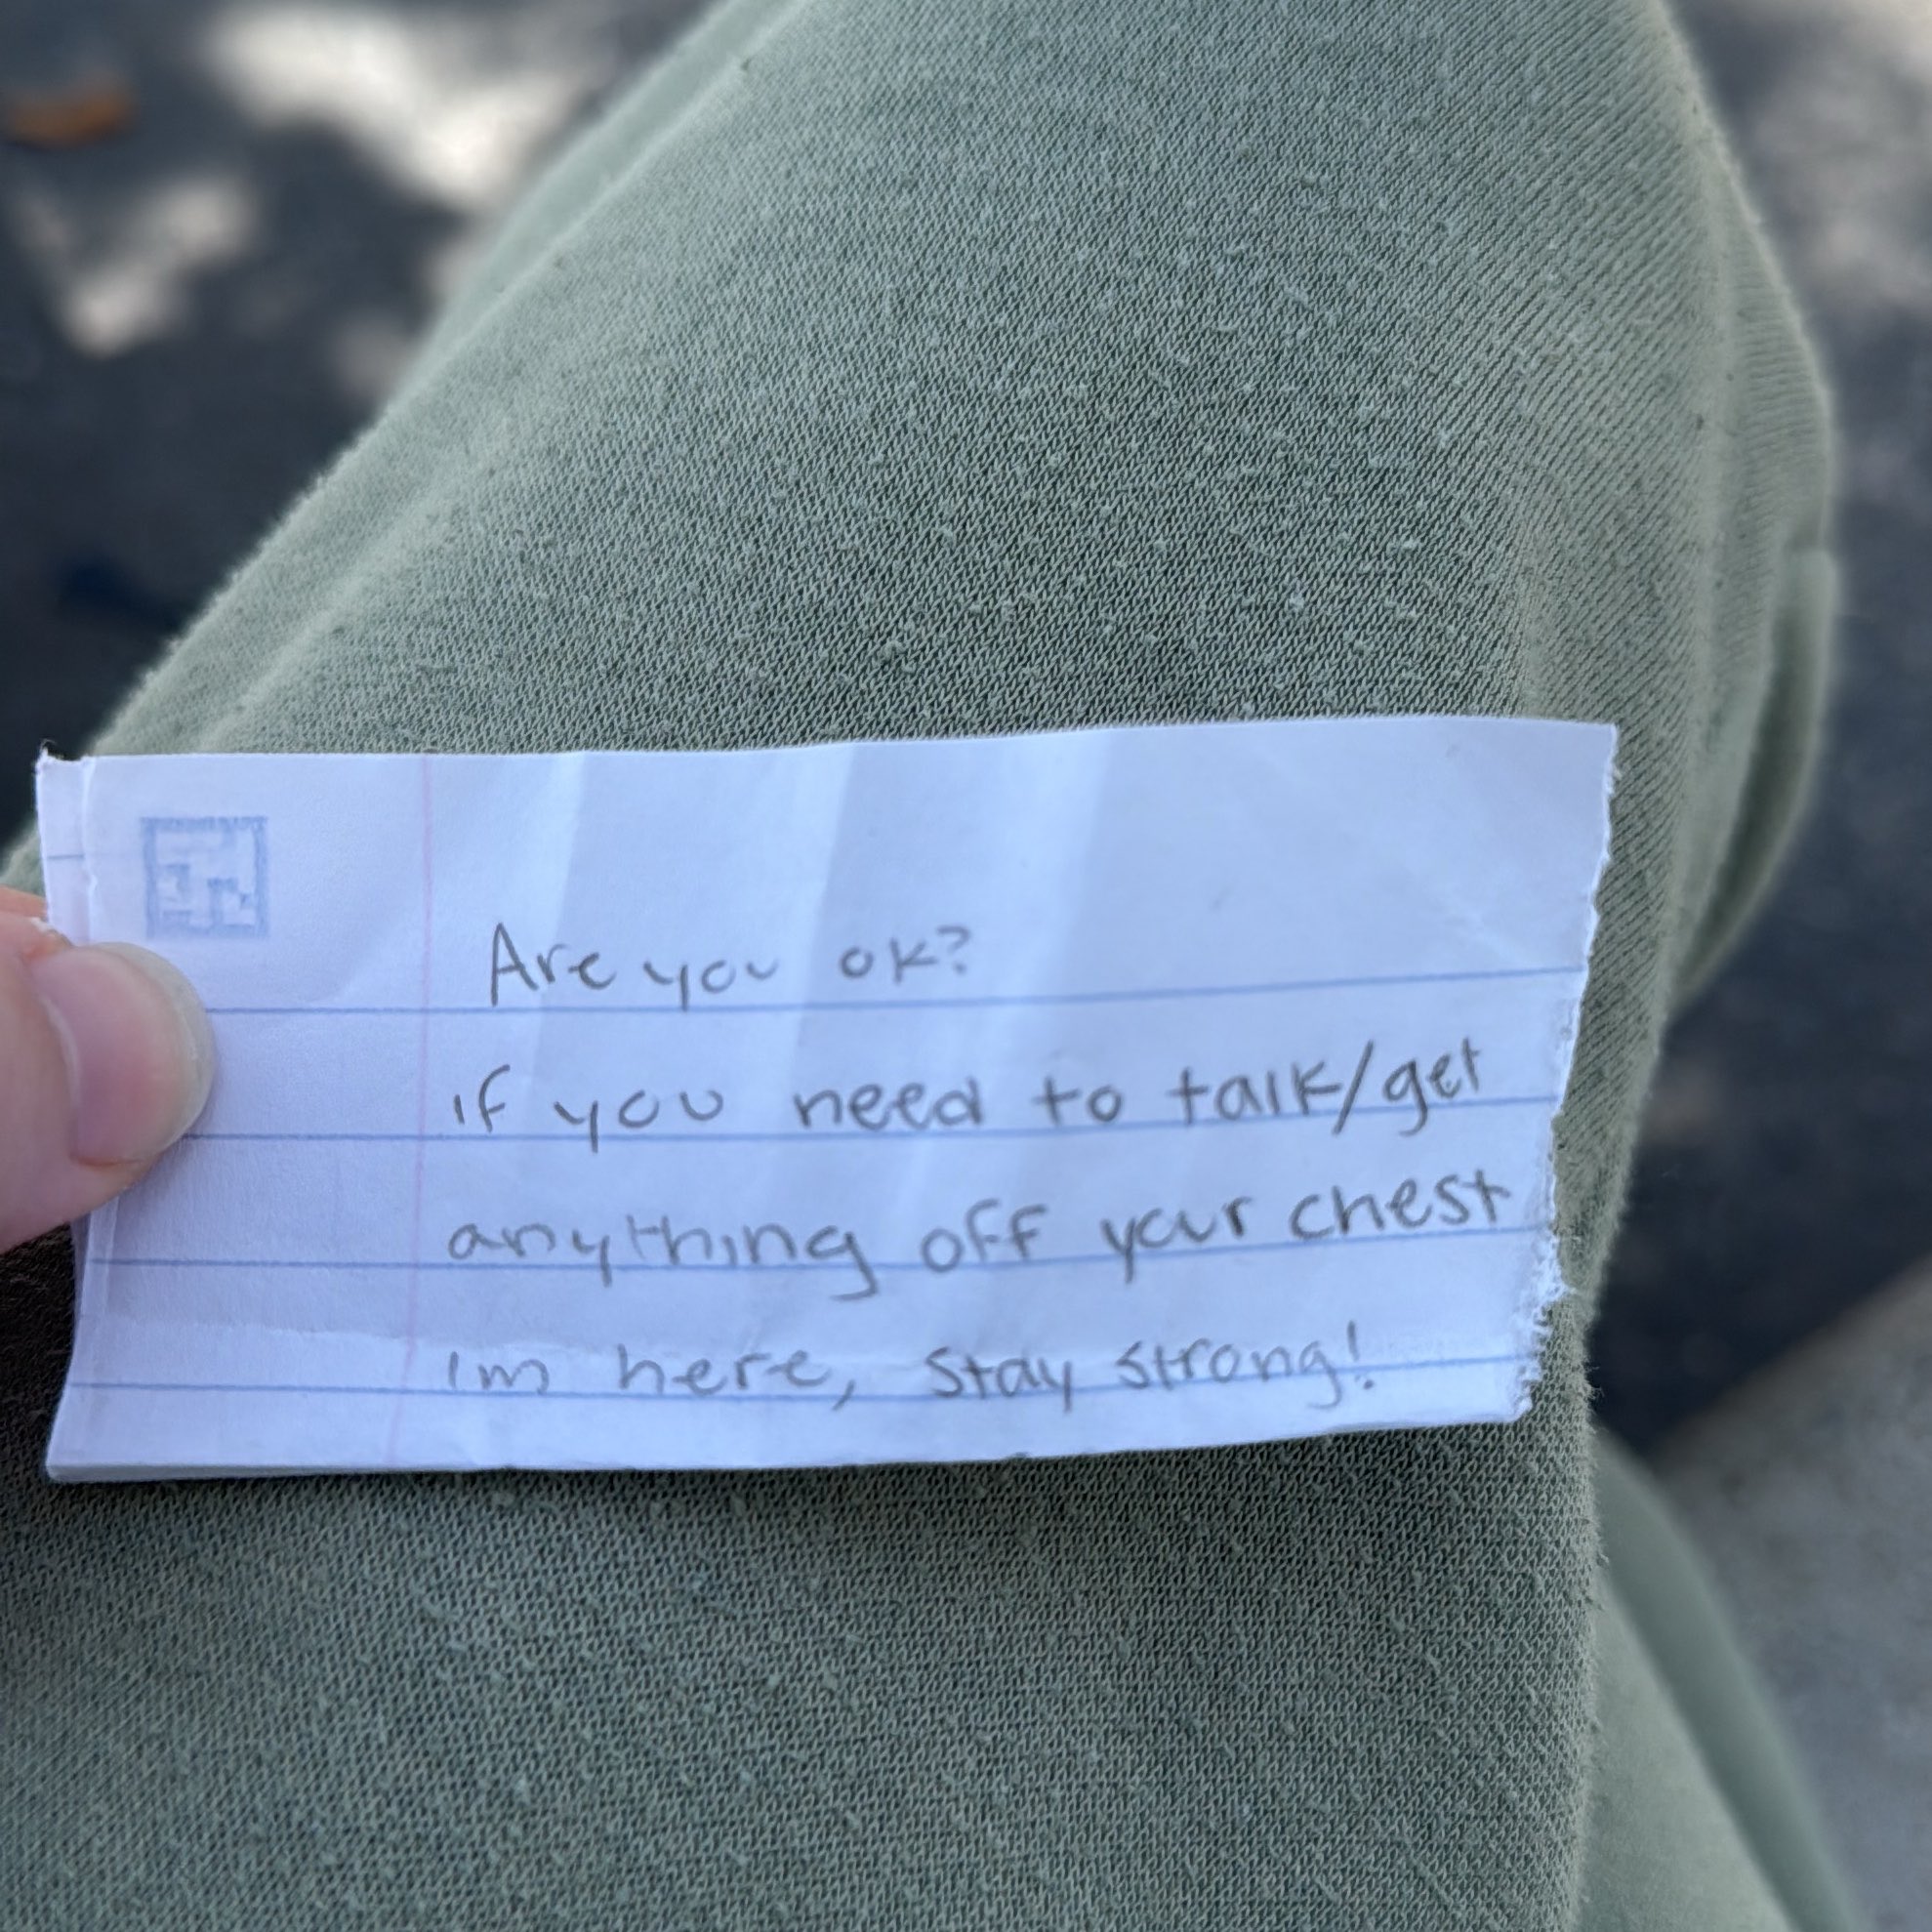 Are you ok?
if you need to talk/get
anything off your chest
im here, stay strong!